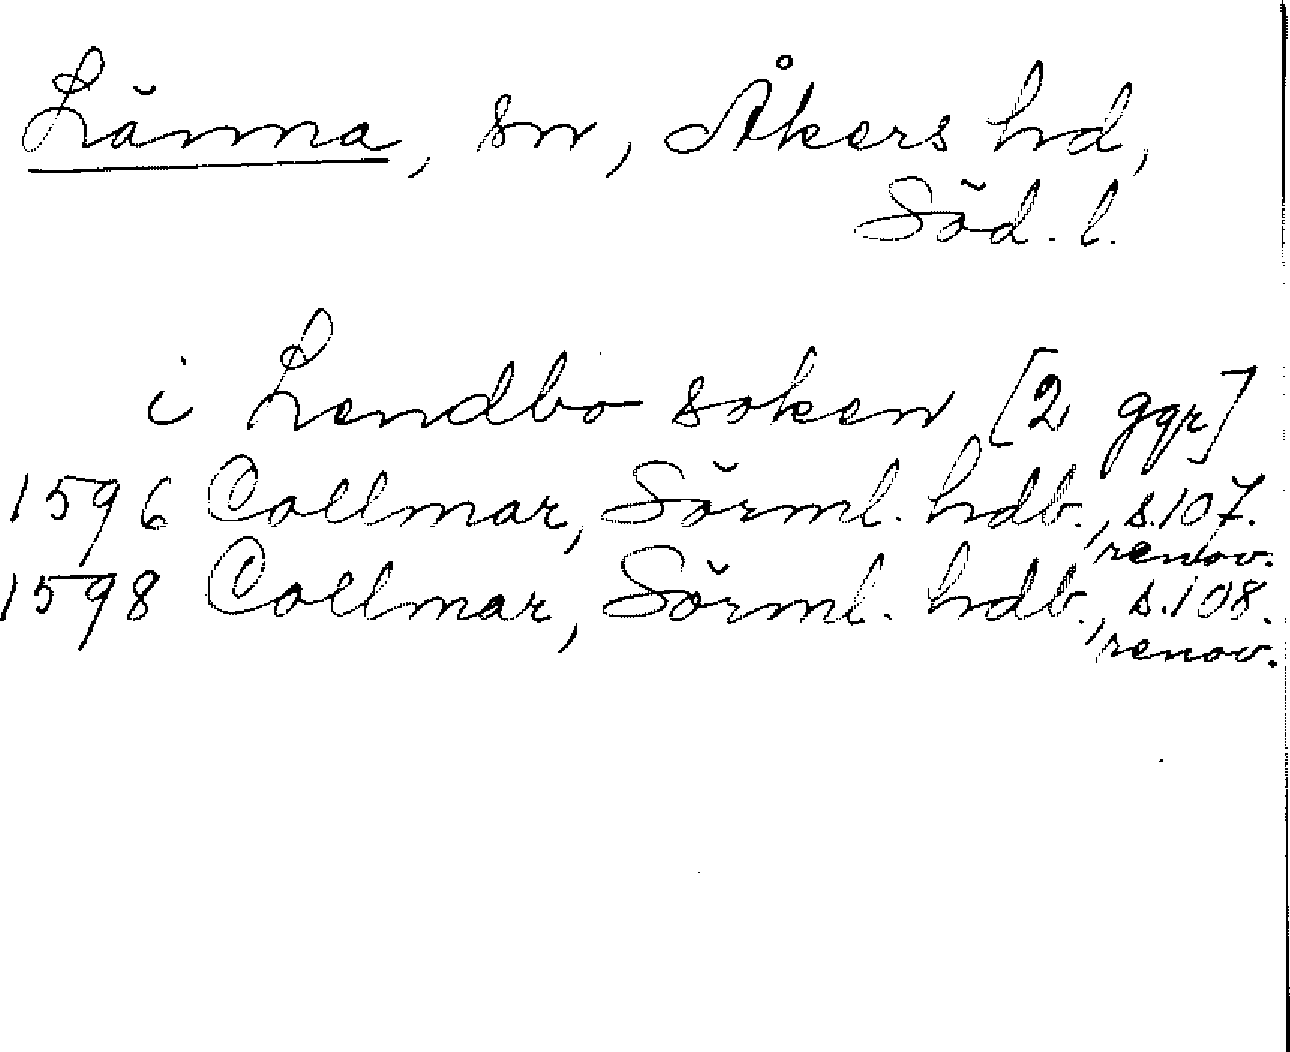 Länna, sn, Åkers hd,
Söd. l.
i Lendbo soken [2 ggr]
1596 Collmar, Sörml. hdb., s.107.
renov.
1598 Collmar, Sörml. hdb., s.108.
renov.